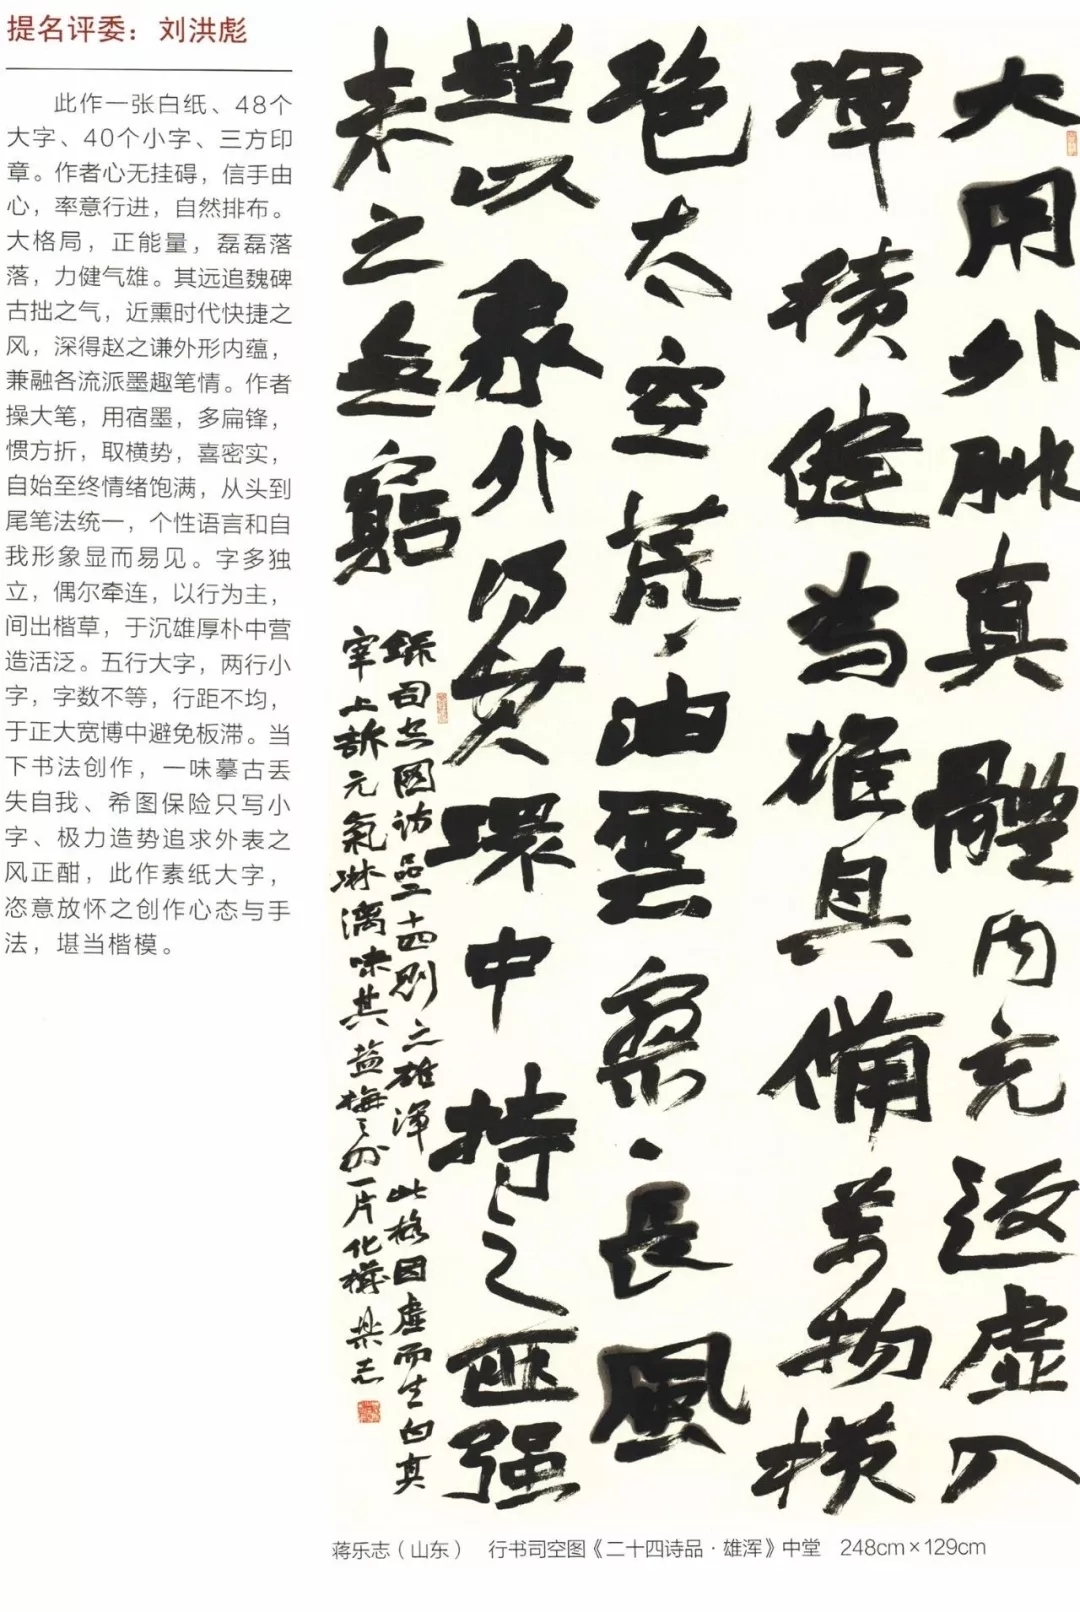 提名评委：刘洪彪
此作一张白纸、48个
大字、40个小字、三方印
章。作者心无挂碍，信手由
心，率意行进，自然排布。
大格局，正能量，磊磊落
落，力健气雄。其远追魏碑
古拙之气，近熏时代快捷之
风，深得赵之谦外形内蕴，
兼融各流派墨趣笔情。作者
操大笔，用宿墨，多扁锋，
惯方折，取横势，喜密实，
自始至终情绪饱满，从头到
尾笔法统一，个性语言和自
我形象显而易见。字多独
立，偶尔牵连，以行为主，
间出楷草，于沉雄厚朴中营
造活泛。五行大字，两行小
字，字数不等，行距不均，
于正大宽博中避免板滞。当
下书法创作，一味摹古丢
失自我、希图保险只写小
字、极力造势追求外表之
风正酣，此作素纸大字，
恣意放怀之创作心态与手
法，堪当楷模。
大用外腓真體内充返虚入
渾積健為雄具備萬物横
绝太空荒〻油雲寥〻長風
超以象外得其環中持之匪强
来之無窮
録司空圖詩品二十四則之雄渾 此格因虚而生白真
宰上訴元氣淋漓味其盐梅之外一片化機 樂志
蒋乐志（山东） 行书司空图《二十四诗品·雄浑》中堂 248cm×129cm